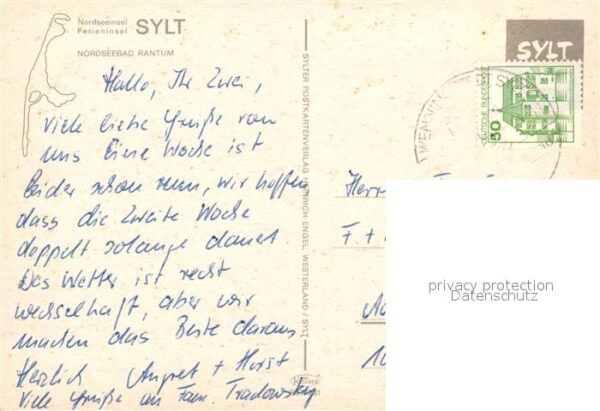 Nordseeinsel
Ferieninsel SYLT
NORDSEEBAD RANTUM
Hallo, Ihr Zwei,
viele liebe Grüße von
uns Eine Woche ist
leider schon rum, wir hoffen
dass die Zweite Woche
doppelt solange dauert.
Das Wetter ist recht
wechselhaft, aber wir
machen das Beste daraus
Herzlich Angret + Horst
Viele Grüße an Fam. Tradowsky
SYLTER POSTKARTENVERLAG HEINRICH ENGEL, WESTERLAND / SYLT
SYLT
DEUTSCHE BUNDESPOST
50
Herr
F +
privacy protection
Datenschutz